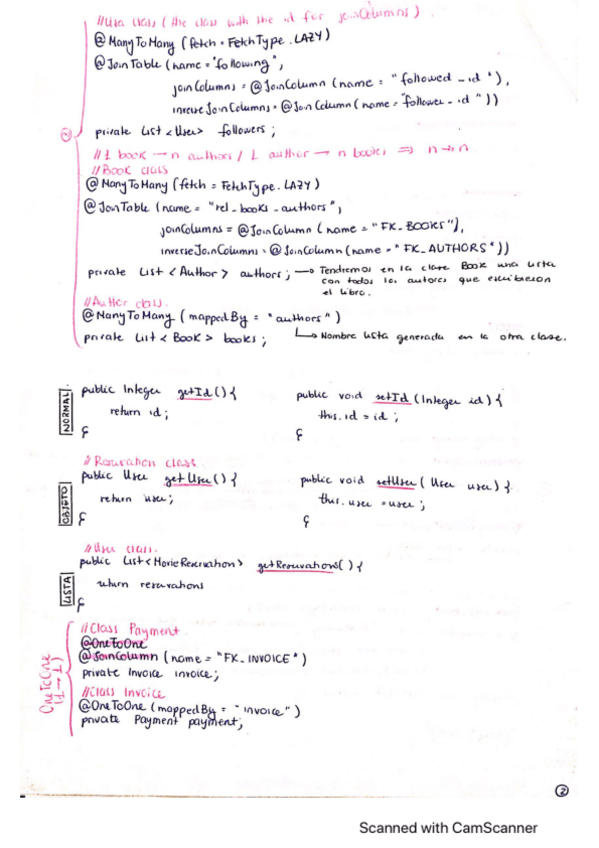 //User class (the class with the id for joinColumns)
@ManyToMany (fetch = FetchType.LAZY)
@JoinTable (name = "following",
joinColumns = @JoinColumn (name = "followed_id"),
inverseJoinColumns = @JoinColumn (name = "follower_id"))
private List<User> followers;
//1 book → n authors / 1 author → n books ⇒ n→n
//Book class
@ManyToMany (fetch = FetchType.LAZY)
@JoinTable (name = "rel_books_authors",
joinColumns = @JoinColumn (name = "FK_BOOKS"),
inverseJoinColumns = @JoinColumn (name = "FK_AUTHORS"))
private List <Author> authors; → Tendremos en la clase Book una lista
con todos los autores que escribieron
el libro.
//Author class.
@ManyToMany (mappedBy = "authors")
private List<Book> books; ↳ Nombre lista generada en la otra clase.
NORMAL
public Integer getId() {
return id;
}
public void setId (Integer id) {
this.id = id;
}
//Reservation class
OBJETO
public User getUser() {
return user;
}
public void setUser (User user) {
this.user = user;
}
//User class.
LISTA
public List<MovieReservation> getReservations() {
return reservations
}
OneToOne
(1→1)
//Class Payment
@OneToOne
@JoinColumn (name = "FK_INVOICE")
private Invoice invoice;
//Class Invoice
@OneToOne (mappedBy = "invoice")
private Payment payment;
2
Scanned with CamScanner